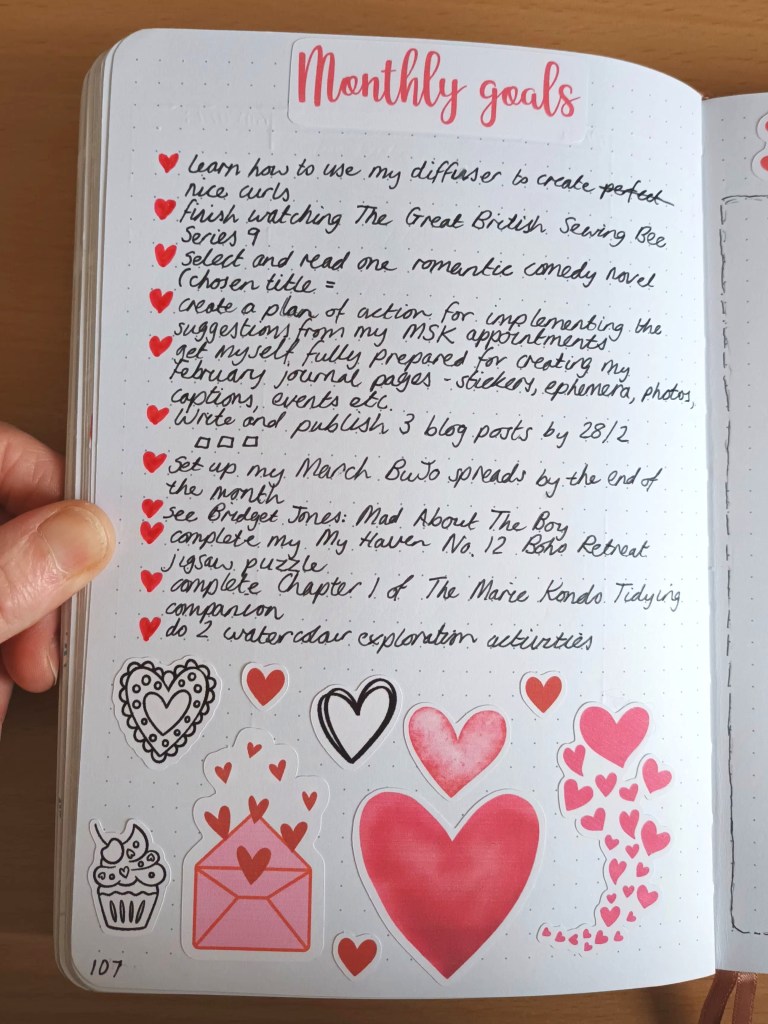 Monthly goals
learn how to use my diffuser to create perfect
nice curls
finish watching The Great British Sewing Bee
Series 9
select and read one romantic comedy novel
(chosen title =
create a plan of action for implementing the
suggestions from my MSK appointments
get myself fully prepared for creating my
February journal pages - stickers, ephemera, photos,
captions, events etc.
Write and publish 3 blog posts by 28/2
Set up my March BuJo spreads by the end of
the month
see Bridget Jones: Mad About The Boy
complete my My Haven No. 12 Boho Retreat
jigsaw puzzle
complete Chapter 1 of The Marie Kondo Tidying
companion
do 2 watercolour exploration activities
107